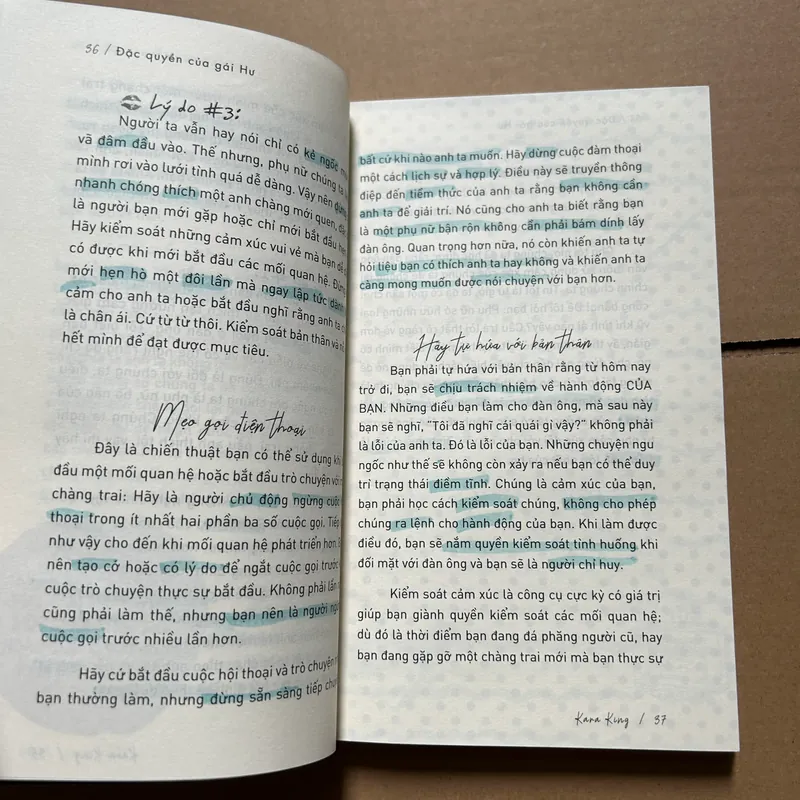 36 / Đặc quyền của gái Hư
Lý do #3:
Người ta vẫn hay nói chỉ có kẻ ngốc mới
vã đâm đầu vào. Thế nhưng, phụ nữ chúng ta
mình rơi vào lưới tình quá dễ dàng. Vậy nên đừng
nhanh chóng thích một anh chàng mới quen, dù
là người bạn mới gặp hoặc chỉ mới bắt đầu hẹn
Hãy kiểm soát những cảm xúc vui vẻ mà bạn
có được khi mới bắt đầu các mối quan hệ. Đừng
mới hẹn hò một đôi lần mà ngay lập tức dành
cảm cho anh ta hoặc bắt đầu nghĩ rằng anh ta
là chân ái. Cứ từ từ thôi. Kiểm soát bản thân và
hết mình để đạt được mục tiêu.
Mẹo gọi điện thoại
Đây là chiến thuật bạn có thể sử dụng khi
đầu một mối quan hệ hoặc bắt đầu trò chuyện với
chàng trai: Hãy là người chủ động ngừng cuộc
thoại trong ít nhất hai phần ba số cuộc gọi. Tiếp
như vậy cho đến khi mối quan hệ phát triển hơn.
nên tạo cớ hoặc có lý do để ngắt cuộc gọi trước
cuộc trò chuyện thực sự bắt đầu. Không phải lần
cũng phải làm thế, nhưng bạn nên là người
cuộc gọi trước nhiều lần hơn.
Hãy cứ bắt đầu cuộc hội thoại và trò chuyện
bạn thường làm, nhưng đừng sẵn sàng tiếp
bất cứ khi nào anh ta muốn. Hãy dừng cuộc đàm thoại
một cách lịch sự và hợp lý. Điều này sẽ truyền thông
điệp đến tiềm thức của anh ta rằng bạn không cần
anh ta để giải trí. Nó cũng cho anh ta biết rằng bạn
là một phụ nữ bận rộn không cần phải bám dính lấy
đàn ông. Quan trọng hơn nữa, nó còn khiến anh ta tự
hỏi liệu bạn có thích anh ta hay không và khiến anh ta
càng mong muốn được nói chuyện với bạn hơn.
Hãy tự hứa với bản thân
Bạn phải tự hứa với bản thân rằng từ hôm nay
trở đi, bạn sẽ chịu trách nhiệm về hành động CỦA
BẠN. Những điều bạn làm cho đàn ông, mà sau này
bạn sẽ nghĩ, “Tôi đã nghĩ cái quái gì vậy?” không phải
là lỗi của anh ta. Đó là lỗi của bạn. Những chuyện ngu
ngốc như thế sẽ không còn xảy ra nếu bạn có thể duy
trì trạng thái điềm tĩnh. Chúng là cảm xúc của bạn,
bạn phải học cách kiểm soát chúng, không cho phép
chúng ra lệnh cho hành động của bạn. Khi làm được
điều đó, bạn sẽ nắm quyền kiểm soát tình huống khi
đối mặt với đàn ông và bạn sẽ là người chỉ huy.
Kiểm soát cảm xúc là công cụ cực kỳ có giá trị
giúp bạn giành quyền kiểm soát các mối quan hệ;
dù đó là thời điểm bạn đang đá phăng người cũ, hay
bạn đang gặp gỡ một chàng trai mới mà bạn thực sự
Kara King / 37